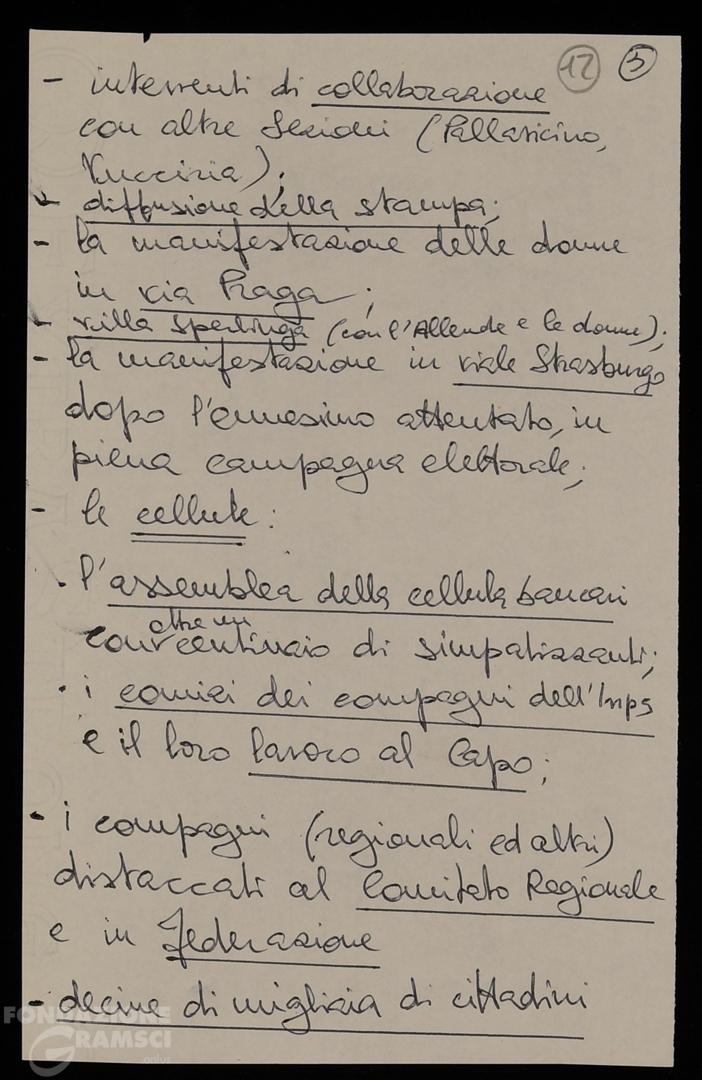 12 5
- interventi di collaborazione
con altre Sezioni (Pallavicino,
Vucciria);
- diffusione della stampa;
- la manifestazione delle donne
in via Praga;
- villa Sperlinga (con l'Allende e le donne);
- la manifestazione in viale Strasburgo
dopo l'ennesimo attentato, in
piena campagna elettorale;
- le cellule:
. l'assemblea della cellula bancari
con oltre un centinaio di simpatizzanti;
. i comizi dei compagni dell'Inps
e il loro lavoro al Capo;
. i compagni (regionali ed altri)
distaccati al Comitato Regionale
e in Federazione
- decine di migliaia di cittadini
FONDAZIONE
GRAMSCI
onlus